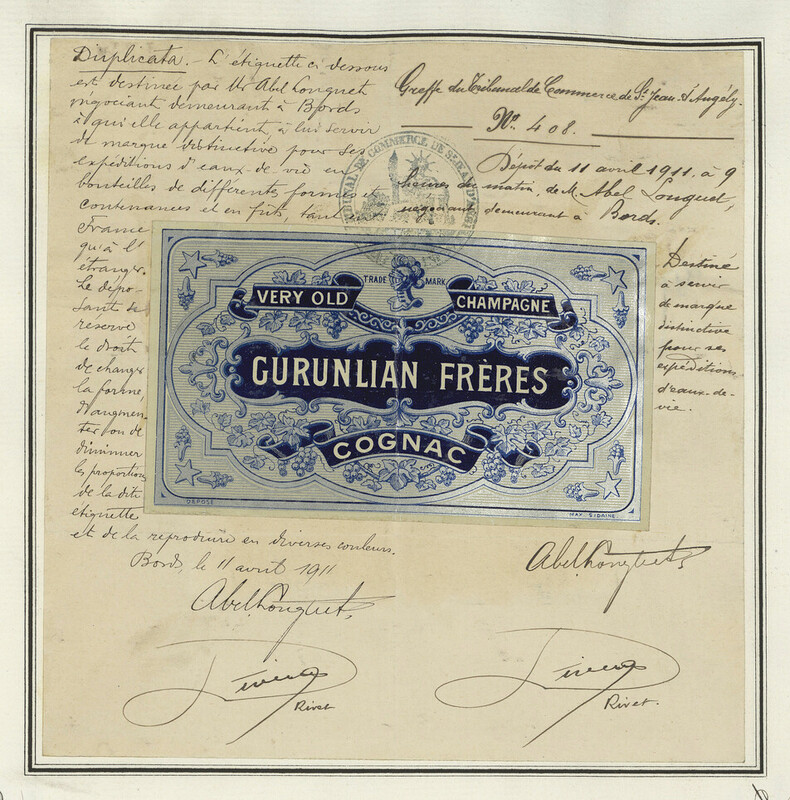 Duplicata. - L'étiquette ci dessous
est destinée par Mr Abel Longuet
négociant demeurant à Bords
à qui elle appartient, à lui servir
de marque distinctive pour ses
expéditions d'eaux-de-vie en
bouteilles de différentes formes et
contenances et en fûts, tant en
France
qu'à l'
étranger.
Le dépo-
sant se
réserve
le droit
de changer
la forme
d'augmen-
ter ou de
diminuer
les proportions
de la dite
etiquette
et de la reproduire en diverses couleurs.
Bords, le 11 avril 1911
Abel Longuet
Rivet
Greffe du Tribunal de Commerce de St Jean d'Angély.
No. 408.
Dépôt du 11 avril 1911. à 9
heures du matin. de M. Abel Longuet,
négociant demeurant à Bords.
TRIBUNAL DE COMMERCE DE ST JEAN D'ANGELY
TRADE MARK
VERY OLD CHAMPAGNE
GURUNLIAN FRÈRES
COGNAC
DÉPOSÉ
MAX. SIDAINE
Destiné
à servir
de marque
distinctive
pour ses
expéditions
d'eaux-de-
vie.
Abel Longuet
Rivet.